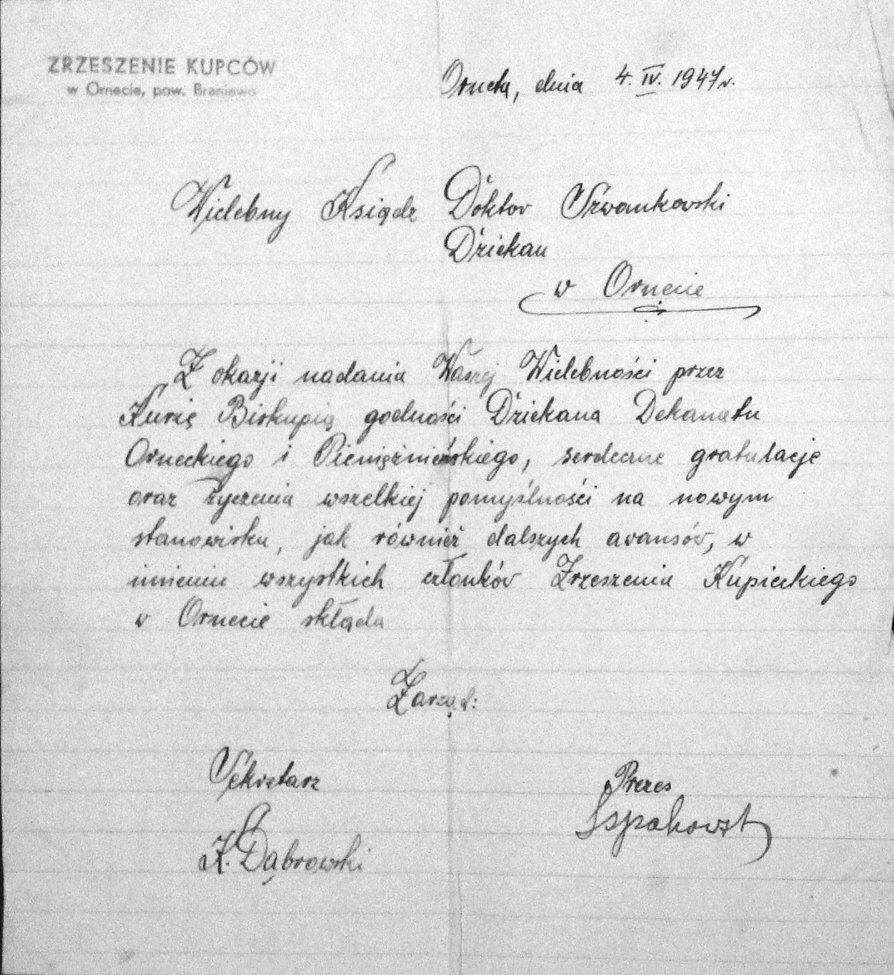 ZRZESZENIE KUPCÓW
w Ornecie, pow. Braniewo
Orneta, dnia 4. IV. 1947 r.
Wielebny Ksiądz Doktor Szwankowski
Dziekan
w Ornecie
Z okazji nadania Waszej Wielebności przez
Kurię Biskupią godności Dziekana Dekanatu
Orneckiego i Pieniężnieńskiego, serdeczne gratulacje
oraz życzenia wszelkiej pomyślności na nowym
stanowisku, jak również dalszych avansów, w
imieniu wszystkich członków Zrzeszenia Kupieckiego
w Ornecie składa
Zarząd:
Sekretarz
Prezes
K. Dąbrowski